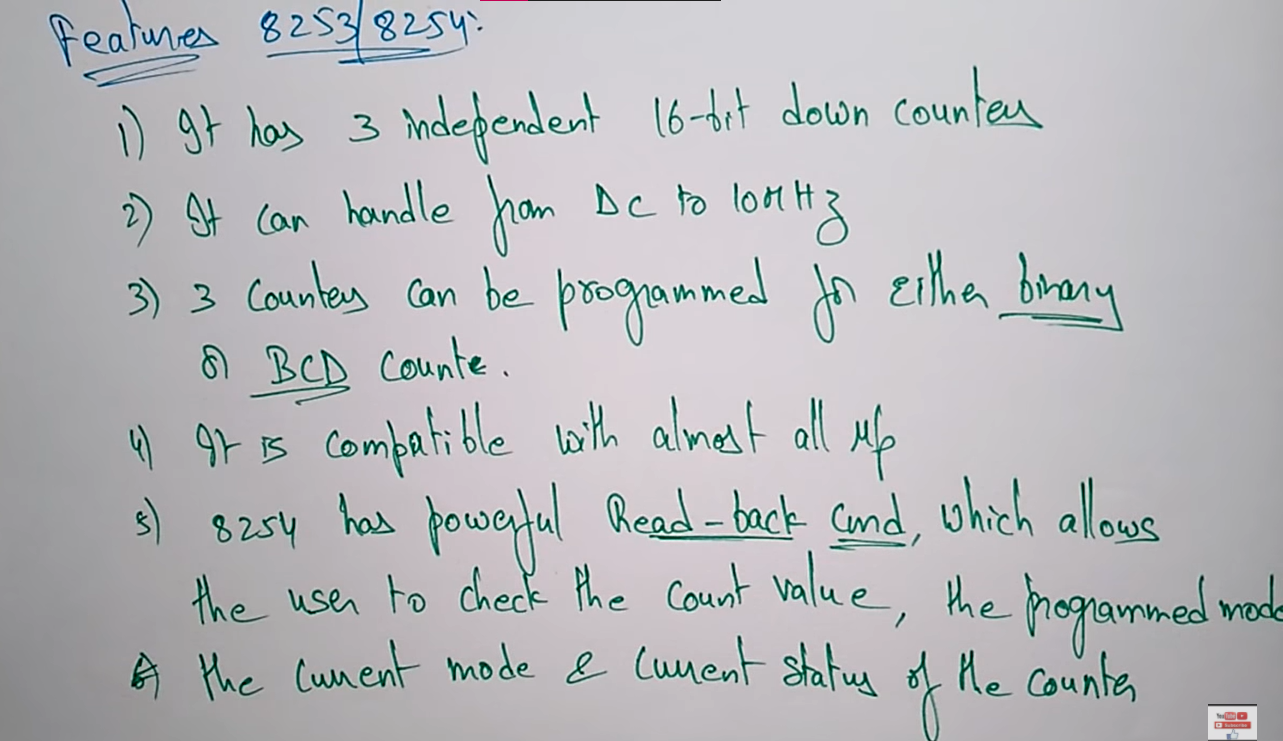 Features 8253/8254:
1) It has 3 independent 16-bit down counters
2) It can handle from DC to 10MHz
3) 3 Counters can be programmed for either binary
or BCD Counte.
4) It is compatible with almost all μp
5) 8254 has powerful Read-back Cmd, which allows
the user to check the count value, the programmed mode
the current mode & current status of the counter
YouTube
Subscribe